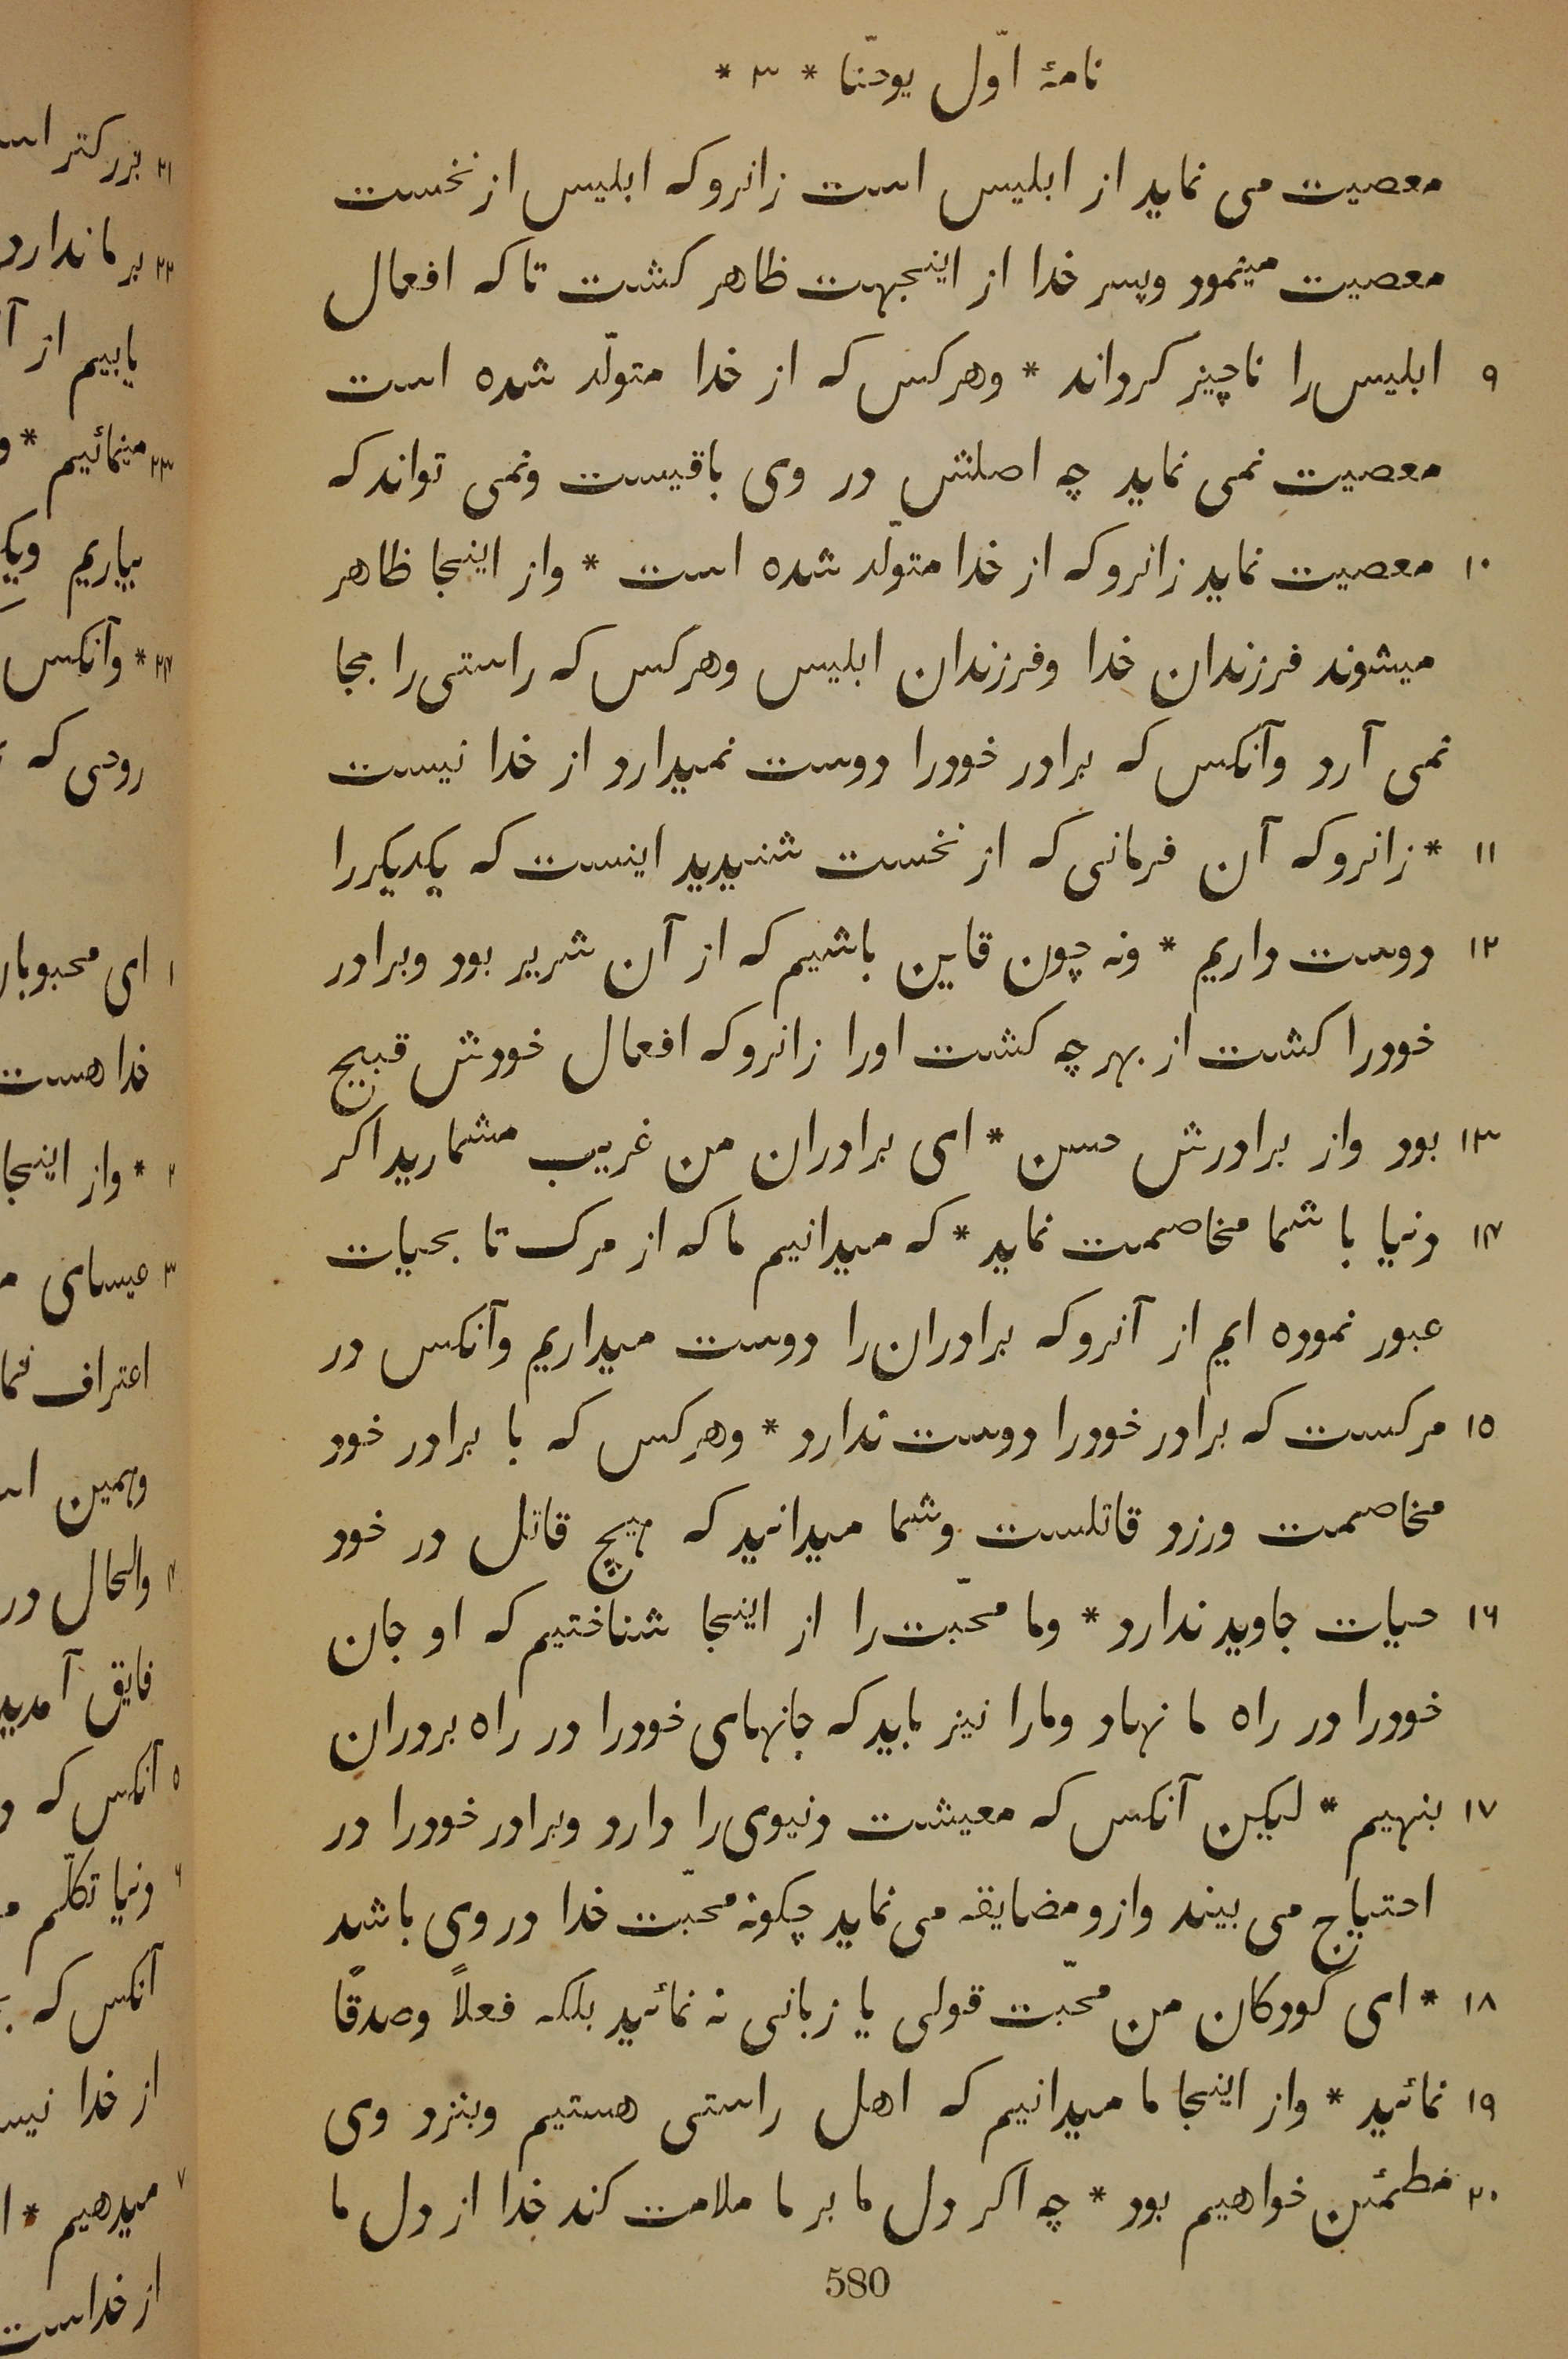 نامهٔ اوّل یوحنّا * ۳ *
معصیت می نماید از ابلیس است زانرو که ابلیس از نخست
معصیت مینمود وپسر خدا از اینجهت ظاهر کشت تا که افعال
۹ ابلیس را ناچیز کرداند * وهر کس که از خدا متولّد شده است
معصیت نمی نماید چه اصلش در وی باقیست ونمی تواند که
۱۰ معصیت نماید زانرو که از خدا متولّد شده است * واز اینجا ظاهر
میشوند فرزندان خدا وفرزندان ابلیس وهر کس که راستی را بجا
نمی آرد وآنکس که برادر خودرا دوست نمیدارد از خدا نیست
۱۱ * زانرو که آن فرمانی که از نخست شنیدید اینست که یکدیکررا
۱۲ دوست داریم * ونه چون قاین باشیم که از آن شریر بود وبرادر
خودرا کشت از بهر چه کشت اورا زانرو که افعال خودش قبیح
۱۳ بود واز برادرش حسن * ای برادران من غریب مشمارید اکر
۱۴ دنیا با شما مخاصمت نماید * که میدانیم ما که از مرک تا بحیات
عبور نموده ایم از آنرو که برادران را دوست میداریم وآنکس در
۱۵ مرکست که برادر خودرا دوست ندارد * وهر کس که با برادر خود
مخاصمت ورزد قاتلست وشما میدانید که هیچ قاتل در خود
۱۶ حیات جاوید ندارد * وما محبّت را از اینجا شناختیم که او جان
خودرا در راه ما نهاد ومارا نیز باید که جانهای خودرا در راه بردران
۱۷ بنهیم * لیکن آنکس که معیشت دنیوی را دارد وبرادر خودرا در
احتیاج می بیند وازو مضایقه می نماید چکونه محبّت خدا در وی باشد
۱۸ * ای کودکان من محبّت قولی یا زبانی نه نمائید بلکه فعلاً وصدقًا
۱۹ نمائید * واز اینجا ما میدانیم که اهل راستی هستیم وبنزد وی
۲۰ مطمئن خواهیم بود * چه اکر دل ما بر ما ملامت کند خدا از دل ما
580
۲۱
۲۲ بر ما ندارد
یابیم از
۲۳ مینمائیم *
بیاریم
۲۴ * وآنکس
روحی که
۱ ای
خدا هست
۲ * واز اینجا
۳ عیسای
اعتراف
وهمین
۴ والحال در
فایق
۵ آنکس که
۶ دنیا تکلّم
آنکس که
از خدا
۷ میدهیم *
از خداست